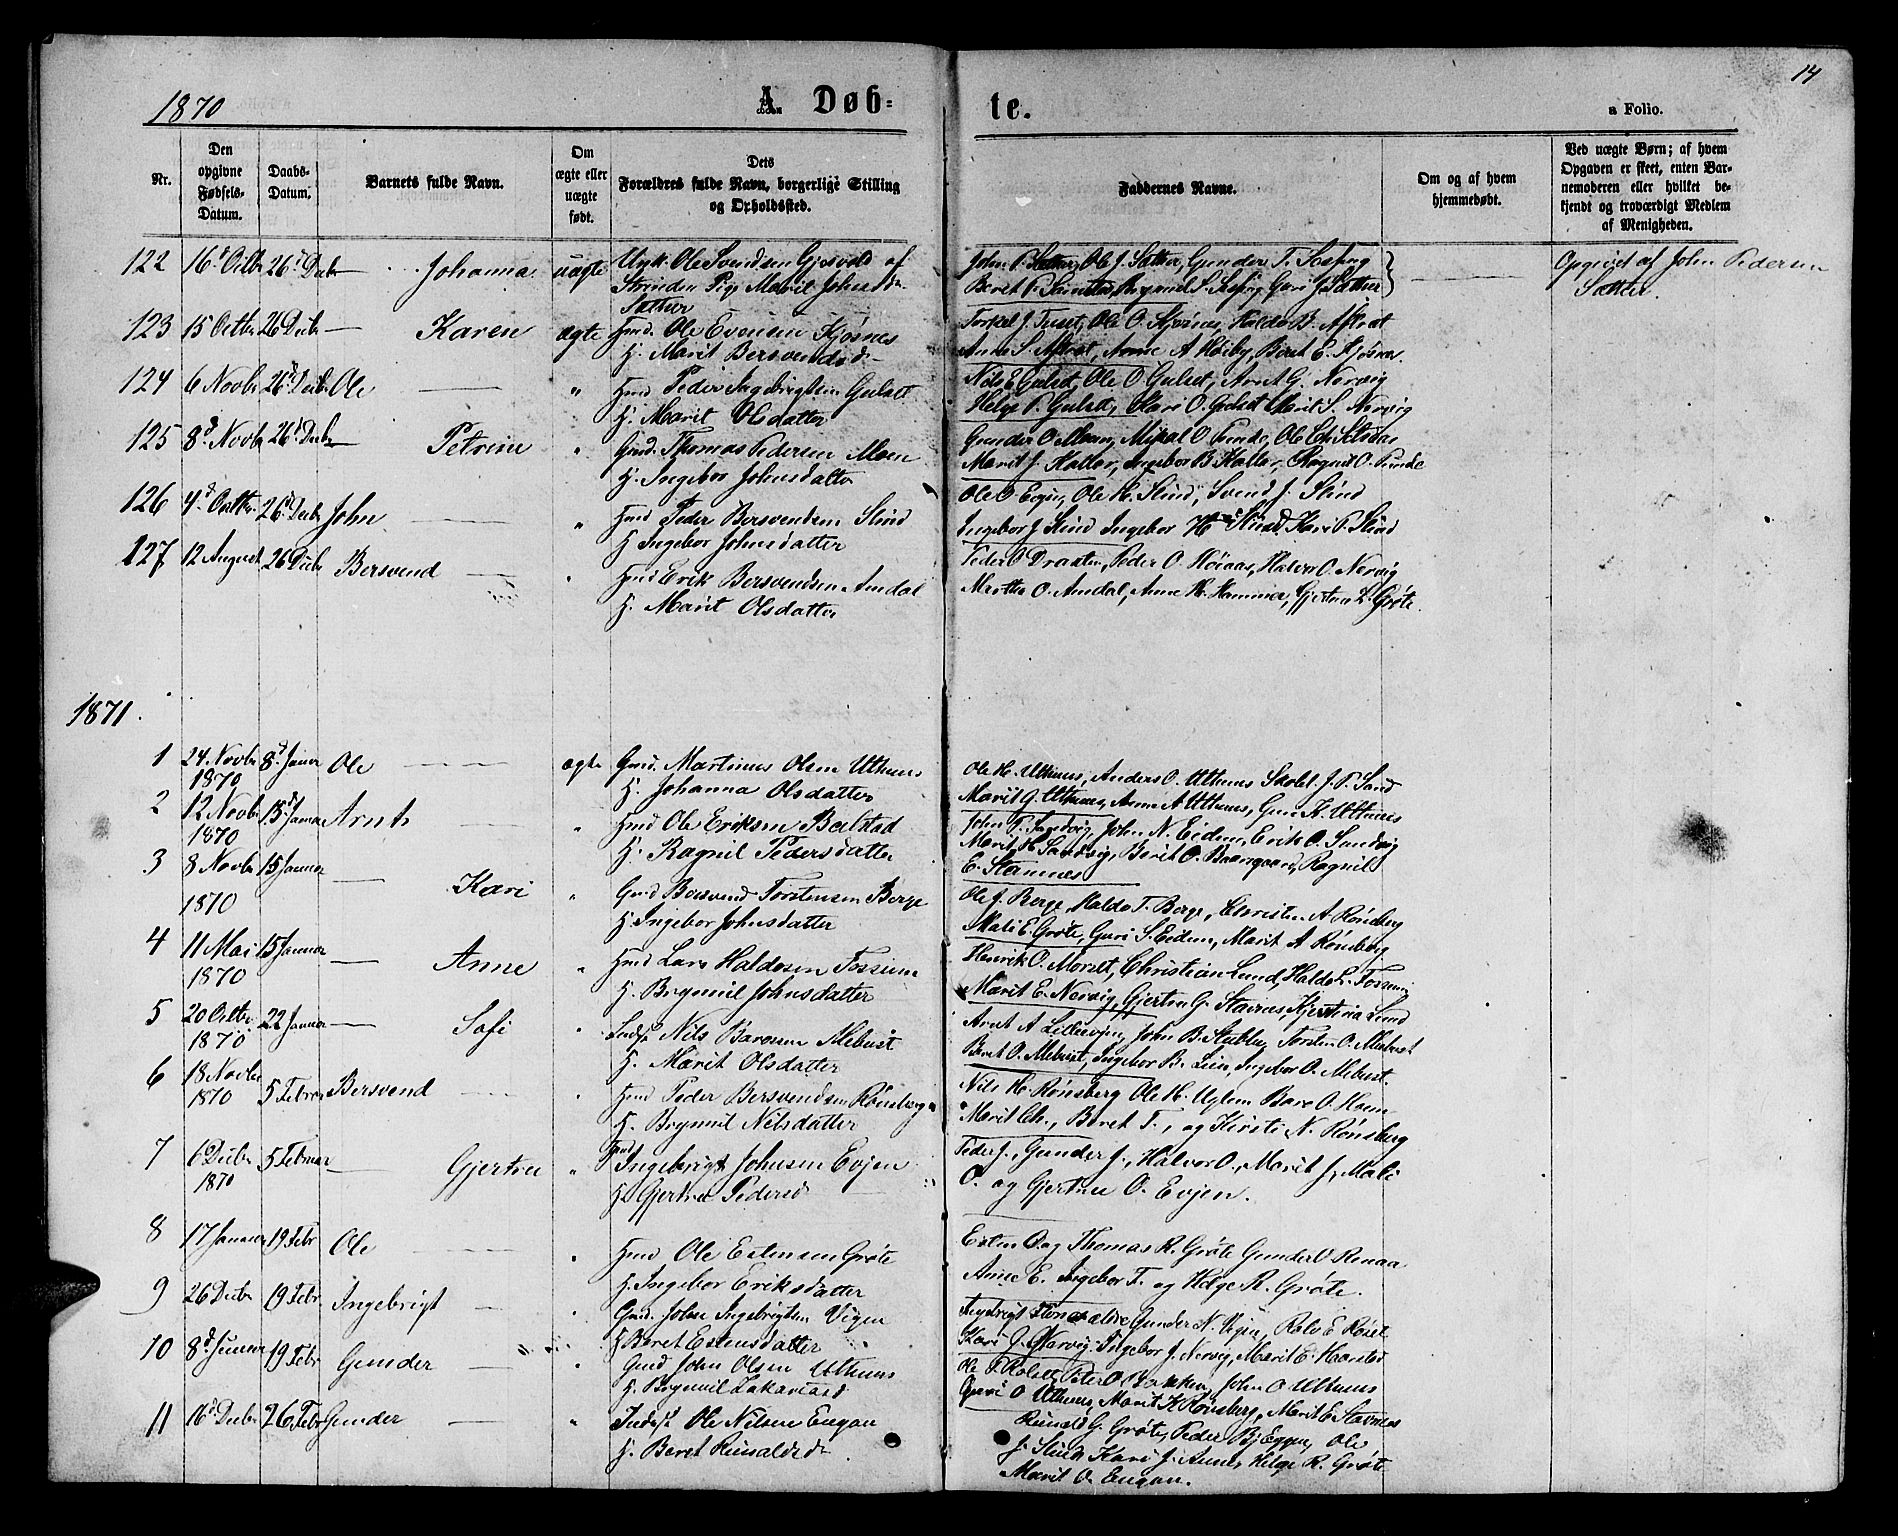 14
1870
A. Døb=
te.
a Folio.
Nr.
Den opgivne Fødsels-Datum.
Daabs-Datum.
Barnets fulde Navn.
Om ægte eller uægte født.
Dets Forældres fulde Navn, borgerlige Stilling og Opholdssted.
Faddernes Navne.
Om og af hvem hjemmedøbt.
Ved uægte Børn; af hvem Opgaven er skeet, enten Barnemoderen eller hvilket bekjendt og troværdigt Medlem af Menigheden.
122 16 Octbr 26 Decbr — Johanna uægte Ungk. Ole Svendsen Gjesvold af
Strinden Pige Marit Johnsdr
Sæther
John P. Sæther, Ole J. Sæther, Gunder T.
Beret P. Gari J. Sæther
Opgivet af John Pedersen
Sæther.
123 15 Octbr 26 Decbr — Karen ægte Hmd. Ole Evensen Kjøsnes
H. Marit Bersvendsdr
Torkel J. Tuset, Ole O. Kjøsnes, Haldo B. Aftret
Anne S. Aftret, Anne A. Høiby, Beret E. Kjøsnes.
124 6 Novbr 26 Decbr Ole — " Hmd Peder Ingebrigtsen Gulset
H. Marit Olsdatter
Nils E. Gulset, Ole O. Gulset, Arnt G. Nervig
Helge P. Gulset, Kari O. Gulset Marit S. Nervig
125 8 Novbr 26 Decbr — Petrine " Gmd. Thomas Pedersen Moen
H. Ingebor Johnsdatter
Gunder O. Moen, Mikal O. Ole Ch. Selsaas
Marit J. Kallar, Ingebor B. Kallar, Ragnil O.
126 4 Octbr 26 Decbr John — " Hmd Peder Bersvendsen Slind
H. Ingebor Johnsdatter
Ole O. Ole H. Slind, Svend J. Slind
Ingebor J. Slind Ingebor H. Slind, Kari P. Slind
127 12 August 26 Decbr Bersvend — " Hmd Erik Bersvendsen Amdal
H. Marit Olsdatter
Peder O. Draxten, Peder O. Høiaas, Halvor O. Nervig
Martha O. Amdal, Anne H. Hammer, Gjertru L. Grøte.
1871.
1 24 Novbr 8 Januar Ole — ægte Gmd. Martinus Olsen Uthuus
1870 H. Johanna Olsdatter
Ole H. Uthuus, Anders O. Uthuus J. P. Sand
Marit G. Uthuus, Anne A Uthuus, Guru K. Uthuus
2 12 Novbr 15 Januar Arnt — " Hmd Ole Eriksen Balstad
1870 H. Ragnil Pedersdatter
John T. Sandvig, John N. Eidem, Erik O. Sandvig
Marit H. Sandvig, Berit O. Baarsgaard, Ragnil
E. Stamnes
3 8 Novbr 15 Januar — Kari " Gmd Bersvend Torstensen Berge
1870 H. Ingebor Johnsdatter
Ole J. Berge, Haldo T. Berge, Christen A. Rønsberg
Mali E. Grøte, Guri S. Eidem, Marit A. Rønsberg
4 11 Mai 15 Januar — Anne " Hmd Lars Haldosen Fossum
1870 H. Brynnil Johnsdatter
Henrik O. Morset, Christian Lund, Haldo L. Fossum
Marit E. Nervig, Gjertru G. Stavnes, Kjerstina Lund
5 20 Octbr 22 Januar — Sofi " Indst Nils Baresen Mebust
1870 H. Marit Olsdatter
Arnt A Lillevjen, John B. Stubbe, Torsten O. Mebust
Beret O. Mebust, Ingebor B. Lien, Ingebor O. Mebust.
6 18 Novbr 5 Februar Bersvend — " Hmd Peder Bersvendsen Rønsberg
1870 H. Brynnil Nilsdatter
Nils H. Rønsberg Ole H. Uglem Bare O. Hoem
Marit Ch., Beret T., og Kirsti N. Rønsberg
7 6 Decbr 5 Februar — Gjertru " Hmd Ingebrigt Johnsen Evjen
1870 H. Gjertru Pedersd
Peder J., Gunder J., Halvor O., Marit J., Mali
O. og Gjertru O. Evjen.
8 17 Januar 19 Febr Ole — " Hmd Ole Estensen Grøte
H. Ingebor Eriksdatter
Esten O. og Thomas R. Grøte Gunder O Renaa
Anne E. Ingebor T. og Helge R. Grøte.
9 26 Decbr 19 Febr Ingebrigt — " Gmd. John Ingebrigtsen Vigen
H. Beret Estensdatter
Ingebrigt Gunder N. Vigen, Rolv E. Røset
Kari J. Nervig, Ingebor J. Nervig, Marit E. Harstad
10 8 Januar 19 Febr Gunder — " Gmd John Olsen Uthuus
H. Brynnil Zakariasd
Ole P. Rolset, Peter O Bakken, John O Uthuus
Guri O Uthuus, Marit K Rønsberg, Marit E. Stavnes
11 16 Decbr 26 Febr Gunder — " Indst Ole Nilsen Engan
H. Beret Rinaldsdr
Rinald G. Grøte, Peder Bj Eggen, Ole
J. Slind Kari J. Aunet, Helge R. Grøte
Marit O. Engan.